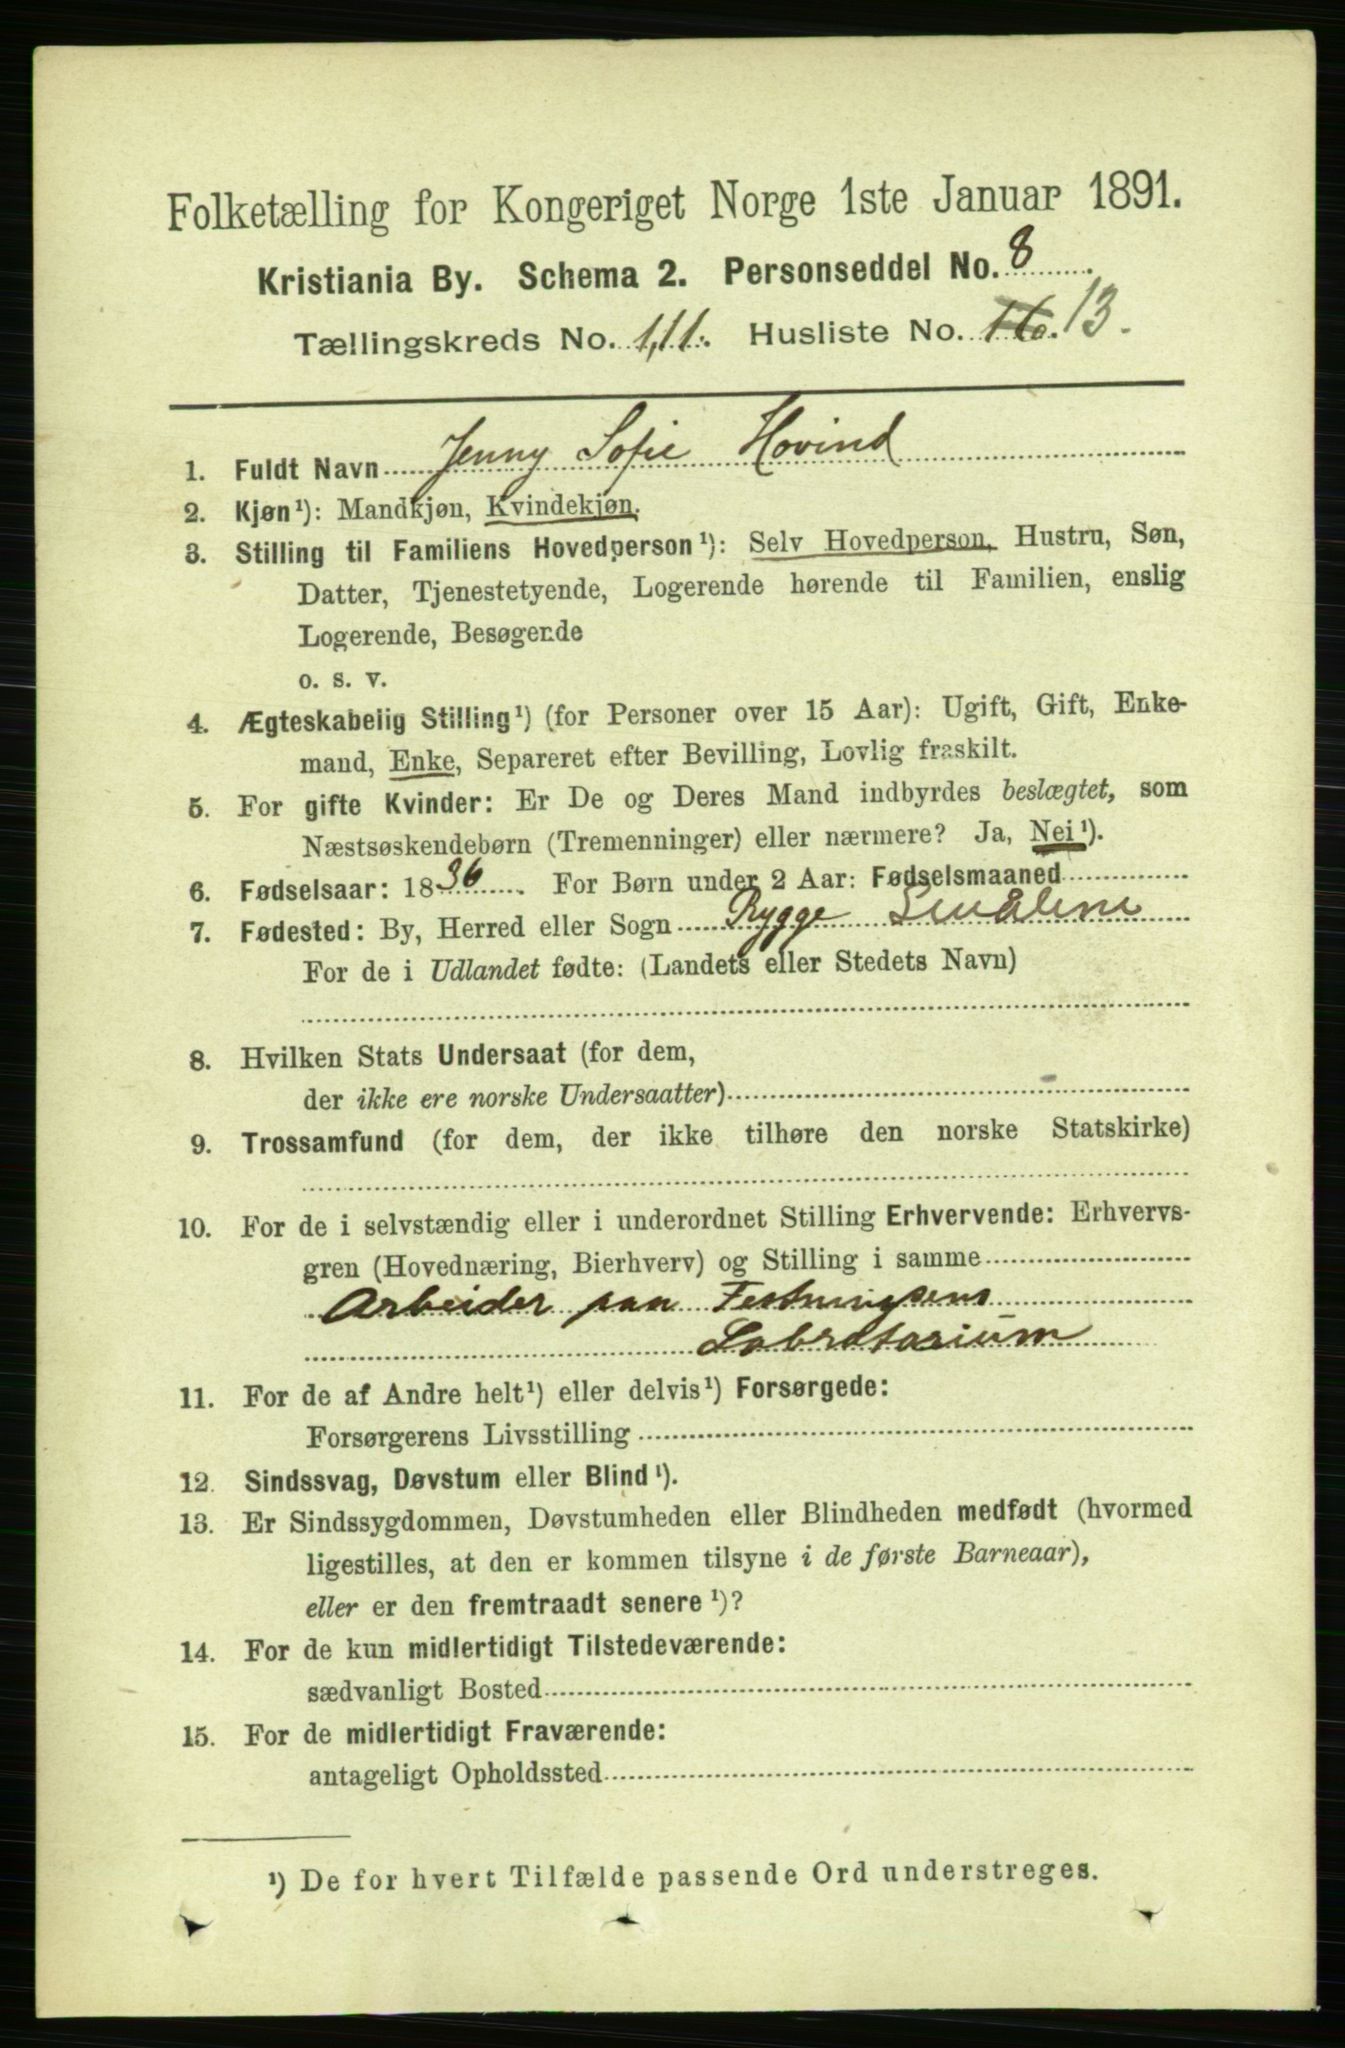 Folketælling for Kongeriget Norge 1ste Januar 1891.
Kristiania By. Schema 2. Personseddel No. 8.
Tællingskreds No. 111. Husliste No. 13.
1. Fuldt Navn Jenny Sofie Hovind
2. Kjøn¹): Mandkjøn, Kvindekjøn.
3. Stilling til Familiens Hovedperson¹): Selv Hovedperson, Hustru, Søn,
Datter, Tjenestetyende, Logerende hørende til Familien, enslig
Logerende, Besøgende
o. s. v.
4. Ægteskabelig Stilling¹) (for Personer over 15 Aar): Ugift, Gift, Enke-
mand, Enke, Separeret efter Bevilling, Lovlig fraskilt.
5. For gifte Kvinder: Er De og Deres Mand indbyrdes beslægtet, som
Næstsøskendebørn (Tremenninger) eller nærmere? Ja, Nei¹).
6. Fødselsaar: 1836. For Børn under 2 Aar: Fødselsmaaned
7. Fødested: By, Herred eller Sogn Rygge Smålene
For de i Udlandet fødte: (Landets eller Stedets Navn)
8. Hvilken Stats Undersaat (for dem,
der ikke ere norske Undersaatter)
9. Trossamfund (for dem, der ikke tilhøre den norske Statskirke)
10. For de i selvstændig eller i underordnet Stilling Erhvervende: Erhvervs-
gren (Hovednæring, Bierhverv) og Stilling i samme
Arbeider paa Festningsens
Labratorium
11. For de af Andre helt¹) eller delvis¹) Forsørgede:
Forsørgerens Livsstilling
12. Sindssvag, Døvstum eller Blind¹).
13. Er Sindssygdommen, Døvstumheden eller Blindheden medfødt (hvormed
ligestilles, at den er kommen tilsyne i de første Barneaar),
eller er den fremtraadt senere¹)?
14. For de kun midlertidigt Tilstedeværende:
sædvanligt Bosted
15. For de midlertidigt Fraværende:
antageligt Opholdssted
¹) De for hvert Tilfælde passende Ord understreges.